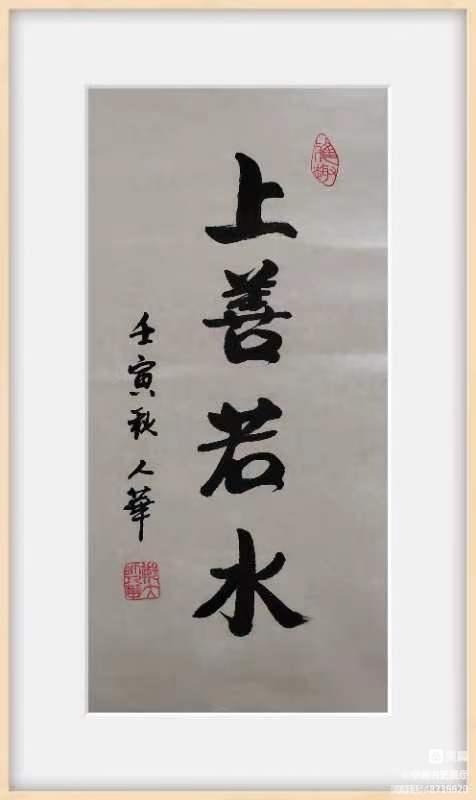 上善若水
壬寅秋 人華